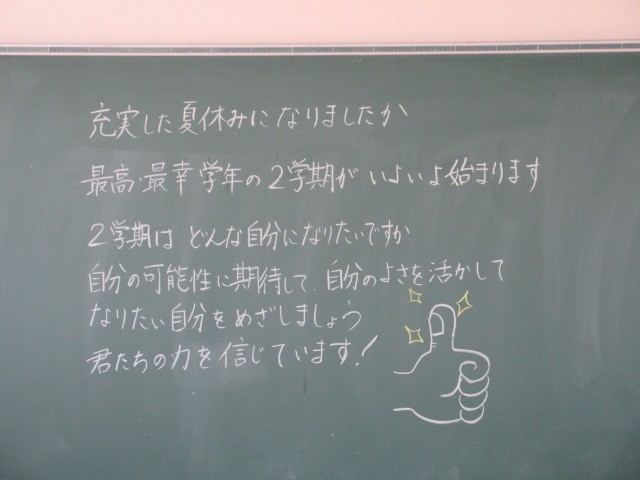 充実した夏休みになりましたか
最高・最幸学年の2学期がいよいよ始まります
2学期は どんな自分になりたいですか
自分の可能性に期待して、自分のよさを活かして
なりたい自分をめざしましょう
君たちの力を信じています!